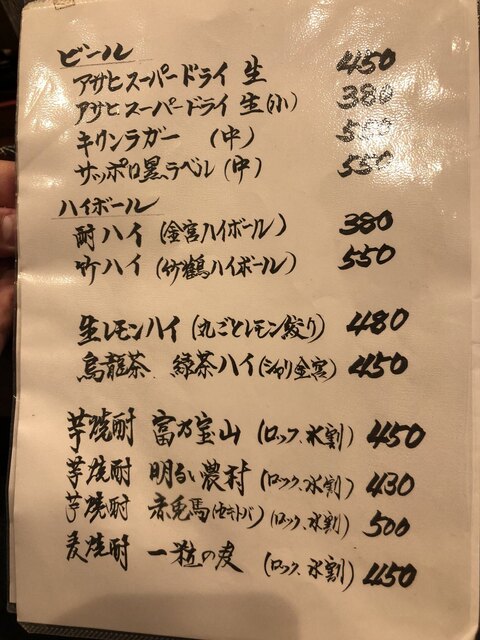 ビール
アサヒスーパードライ 生 450
アサヒスーパードライ 生(小) 380
キリンラガー (中) 550
サッポロ黒ラベル (中) 550
ハイボール
耐ハイ (金宮ハイボール) 380
竹ハイ (竹鶴ハイボール) 550
生レモンハイ (丸ごとレモン絞り) 480
烏龍茶 緑茶ハイ (シャリ金宮) 450
芋焼酎 富乃宝山 (ロック、水割) 450
芋焼酎 明るい農村 (ロック、水割) 430
芋焼酎 赤兎馬(セキトバ) (ロック、水割) 500
麦焼酎 一粒の麦 (ロック、水割) 450